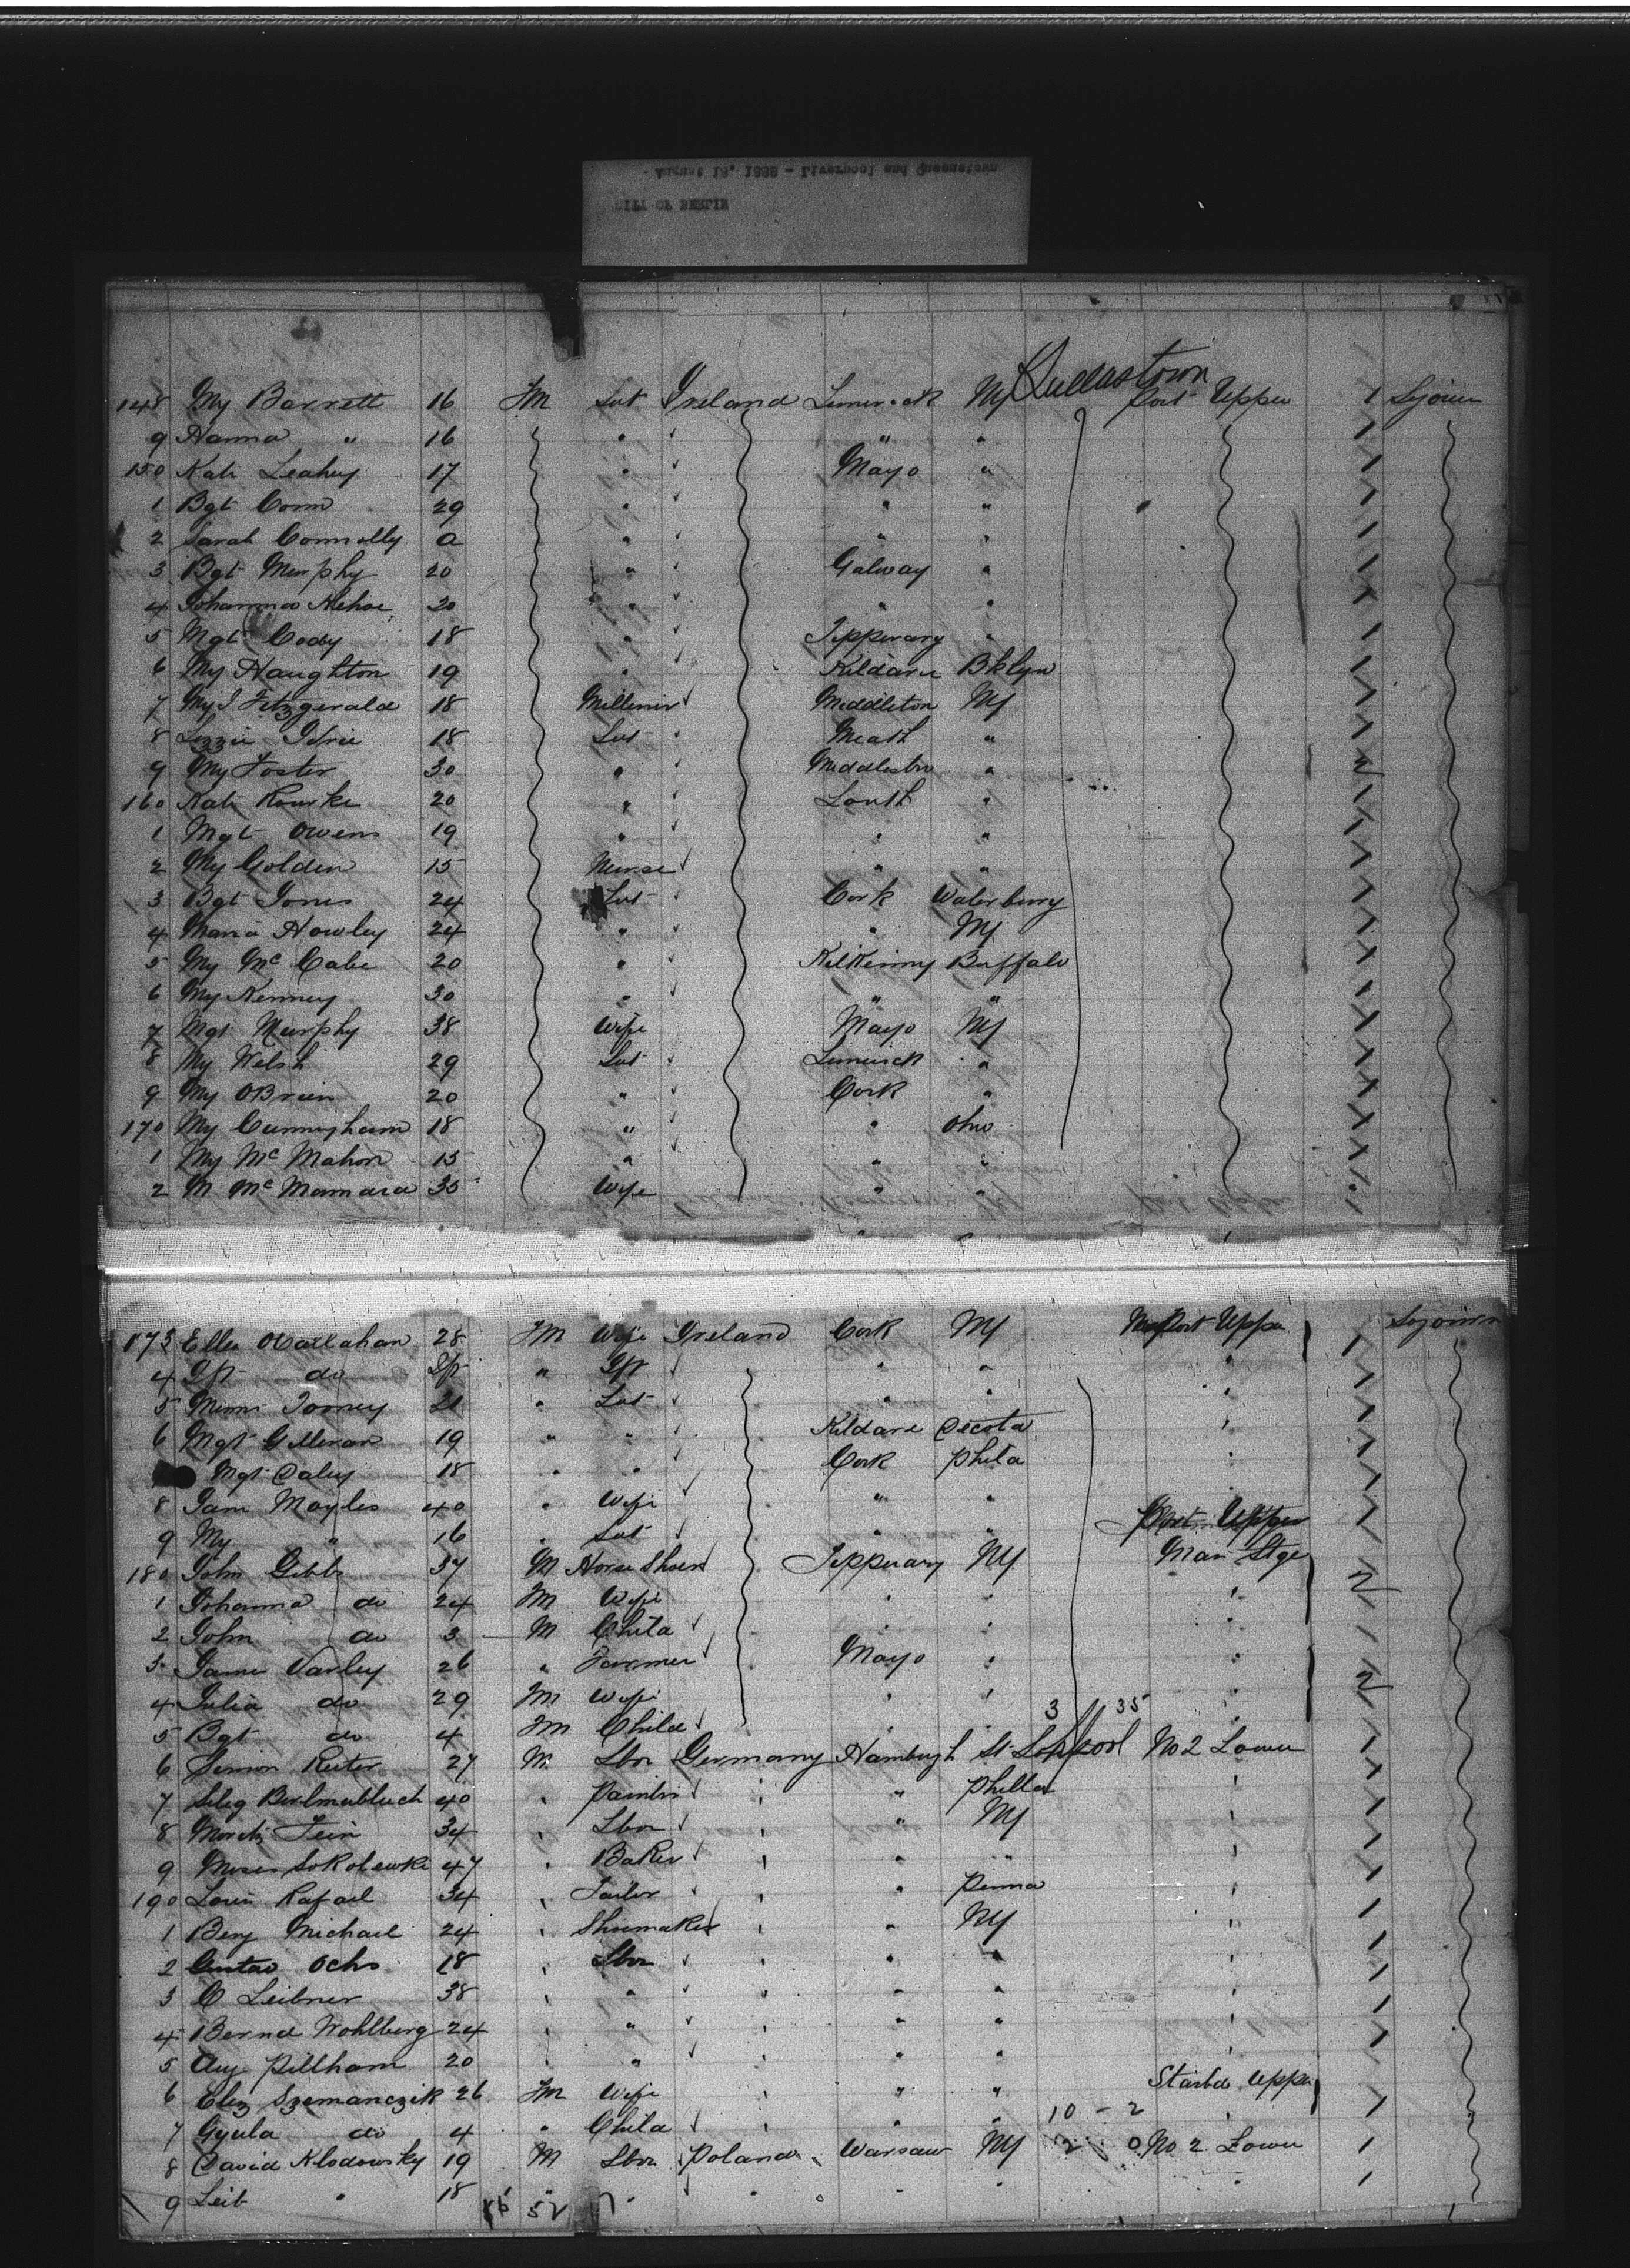 August 18, 1888 - Liverpool and Queenstown
CITY OF BERLIN
Queenstown
148 My Barrett 16 Fm Svt Ireland Limerick NY Port Upper 1 Sojourn
9 Hanna " 16 " " "
150 Kate Leahy 17 " Mayo "
1 Bgt Conn 29 " " "
2 Sarah Connolly a " " "
3 Bgt Murphy 20 " Galway "
4 Johanna Kehoe 20 " " "
5 Mgt Cody 18 " Tipperary "
6 My Haughton 19 " Kildare Bklyn
7 My J Fitzgerald 18 Milliner Middleton NY
8 Lizzie 18 Svt Meath "
9 My Foster 30 " Middleton "
160 Kate Rourke 20 " Louth "
1 Mgt Owens 19 " " "
2 My Golden 15 Nurse " "
3 Bgt Jones 24 Svt Cork Waterbury
4 Maria Howley 24 " " NY
5 My Mc Cabe 20 " Kilkenny Buffalo
6 My Kenney 30 " " "
7 Mgt Murphy 38 Wife Mayo NY
8 My Welsh 29 Svt Limerick "
9 My OBrien 20 " Cork "
170 My Cunningham 18 " " Ohio
1 My Mc Mahon 15 " " "
2 M Mc Mamara 35 Wife " "
173 Ellen OCallahan 28 Fm Wife Ireland Cork NY Port Upper 1 Sojourn
4 Ift do Ift " Ift " "
5 Minni Toomey 21 " Svt " "
6 Mgt Gilleran 19 " " Kildare Decota
Mgt Daley 18 " " Cork Phila
8 Jam Moyles 40 " Wife " "
9 My " 16 " Svt " " Port Upper
180 John Gibbs 37 M Horse Shoer Tipperary NY Mar Stge 2
1 Johanna do 24 Fm Wife " " "
2 John do 3 M Child " " "
3 James Varley 26 " Farmer Mayo " " 2
4 Julia do 29 Fm Wife " " "
3 35
5 Bgt do 4 Fm Child " " "
6 Simon Reiter 27 M Lbr Germany Hamburgh No 2 Lower
7 Selig 40 " Painter " " Philla "
8 Moritz Fein 34 " Lbor " NY "
9 Moses Sokolewki 47 " Baker " " " "
190 Louis Rafael 34 " Tailor " Penna "
1 Berg Michael 24 " Shoemaker " " NY "
2 Gustav Ochs 18 " Lbor " " "
3 C Leibner 38 " " " " " "
4 Bernd Wohlberg 24 " " " " " "
5 Aug Pillham 20 " " " " "
6 Eliz Szemanczik 26 Fm Wife " " " Starbd Upper
10 - 2
7 Gyula do 4 " Child " " " "
8 David Klodowsky 19 M Lbor Poland Warsaw NY 2 0 No 2 Lower 1
9 Leib " 18 " " " " " "
52